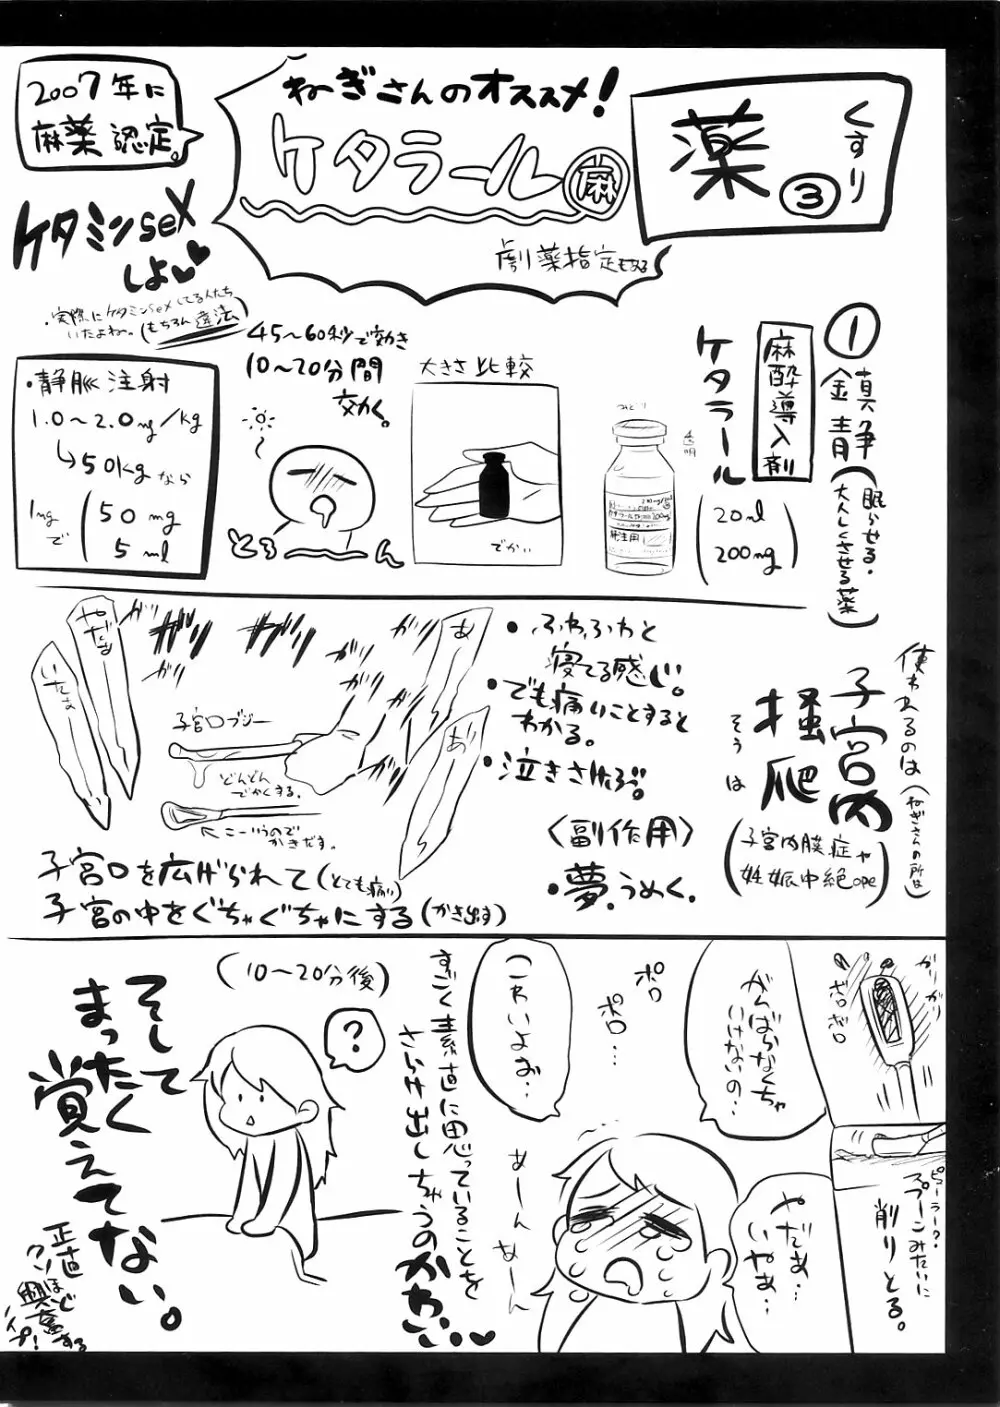 薬
くすり
③
ねぎさんのオススメ!
ケタラール
麻
劇薬指定もある
2007年に
麻薬認定。
ケタミンseX
しよ
・実際にケタミンseXしてる人たち
いたよね〜。(もちろん違法)
①
鎮静(眠らせる・
大人しくさせる薬)
麻酔導入剤
ケタラール
(20ml
200mg)
透明
静注用
大きさ比較
でかい
45〜60秒で効き
10〜20分間
効く。
とろ〜ん
・静脈注射
1.0〜2.0mg/kg
↳50kgなら
1mgで
(50mg
5ml
使われるのは(ねぎさんの所は)
子宮内
掻爬
そうは
(子宮内膜症や
妊娠中絶ope)
・ふわふわと
寝てる感じ。
・でも痛いことすると
わかる。
・泣きさけぶ。
〈副作用〉
・夢、うめく。
あ
あ
ガリ
ガリ
ガリ
ガリ
ガッ
ガッ
やだぁ
いたぁ
子宮口ブジー
どんどん
でかくする。
こーいうので
かきだす。
子宮口を広げられて(とても痛い)
子宮の中をぐちゃぐちゃにする(かき出す)
ガリガリ
ボロボロ
ピューラー?
スプーンみたいに
削りとる。
がんばらなくちゃ
いけないの…
やだぁ…
いやぁ…
ポロ
ポロ…
こわいよぉ…
あーん
あーん
すごく素直に思っていることを
さらけ出しちゃうのかわいい
(10〜20分後)
?
そして
まったく
覚えてない。
正直
クソほど
興奮する